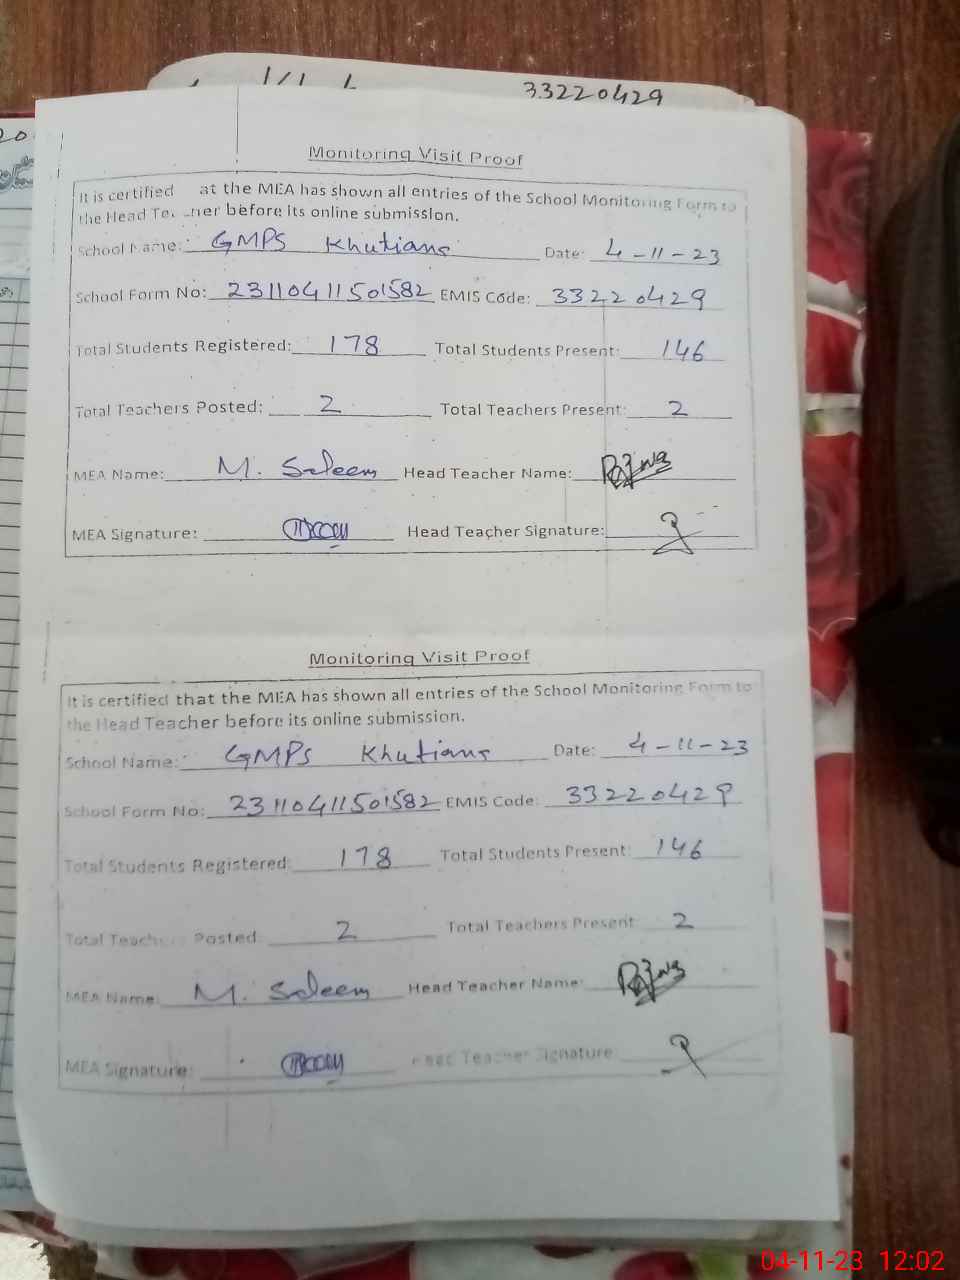 33220429
20
Monitoring Visit Proof
It is certified at the MEA has shown all entries of the School Monitoring Form to
the Head Te cher before its online submission.
School Name: GMPS Khutians Date: 4-11-23
School Form No: 23110411501582 EMIS Code: 33220429
Total Students Registered: 178 Total Students Present: 146
Total Teachers Posted: 2 Total Teachers Present: 2
MEA Name: M. Saleem Head Teacher Name:
MEA Signature: Head Teacher Signature:
Monitoring Visit Proof
It is certified that the MEA has shown all entries of the School Monitoring Form to
the Head Teacher before its online submission.
School Name: GMPS Khutians Date: 4-11-23
School Form No: 23110411501582 EMIS Code: 33220429
Total Students Registered: 178 Total Students Present: 146
Total Teachers Posted: 2 Total Teachers Present: 2
MEA Name: M. Saleem Head Teacher Name:
MEA Signature: Head Teacher Signature
04-11-23 12:02